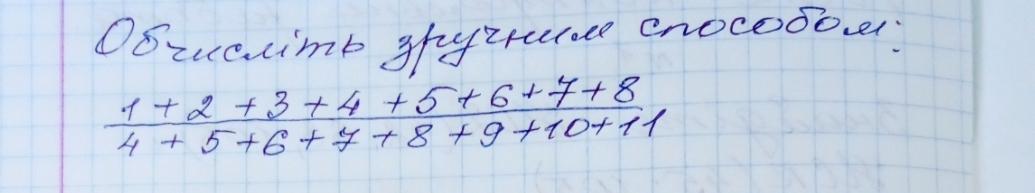 Обчисліть зручним способом:
1 + 2 + 3 + 4 + 5 + 6 + 7 + 8
4 + 5 + 6 + 7 + 8 + 9 + 10 + 11